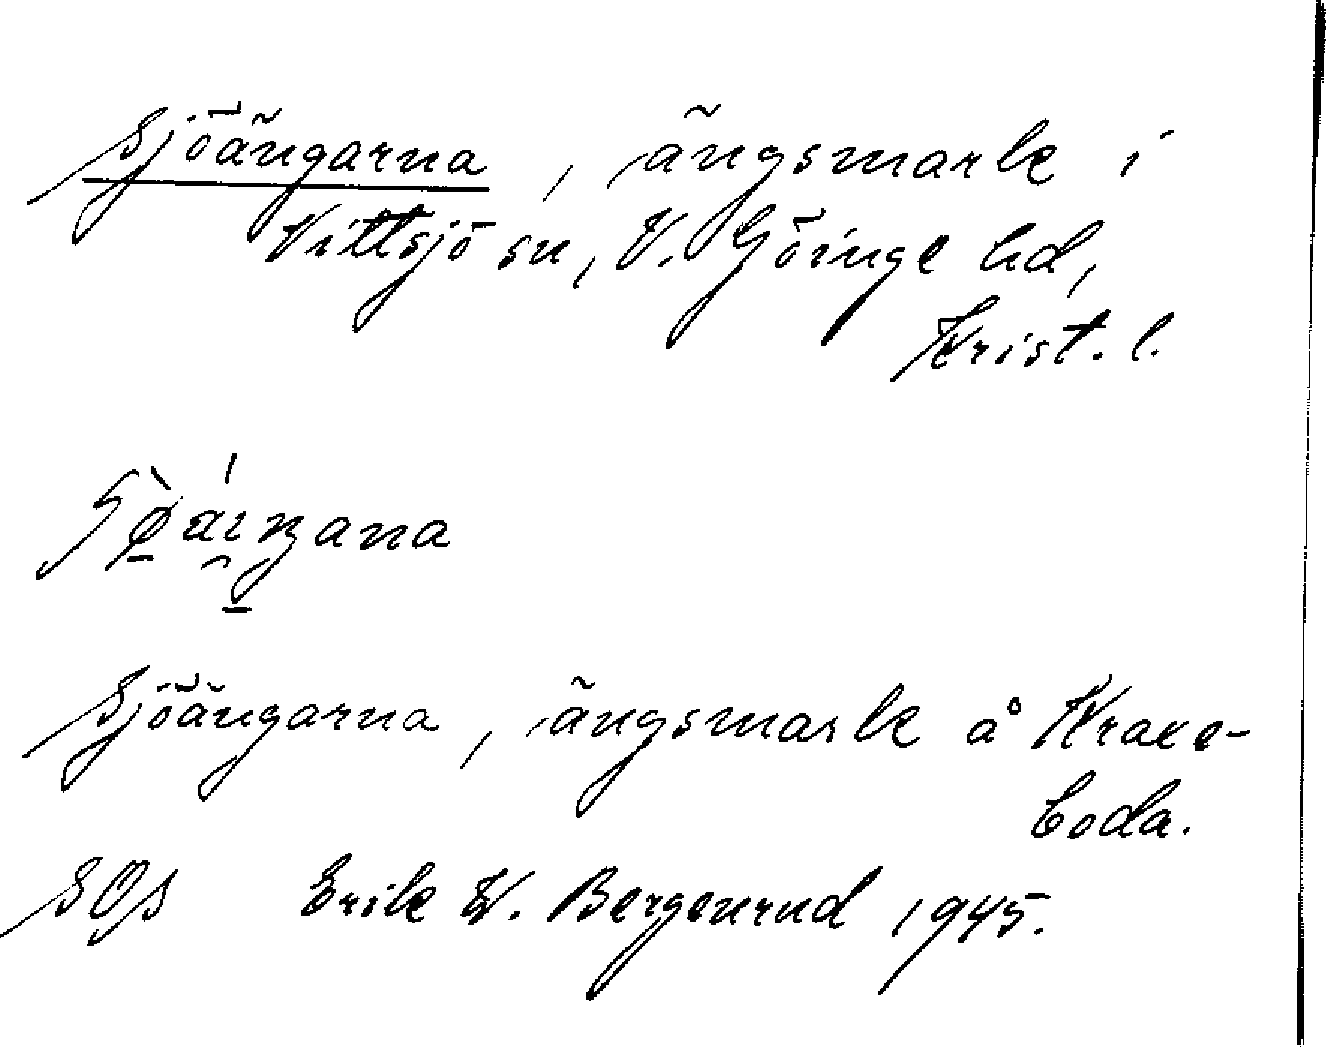 Sjöängarna, ängsmark i
Vittsjö sn, V. Göinge hd,
Krist. l.
Sjöängarna, ängsmark å Krace-
boda.
SOJ Erik W. Bergenrud 1945.